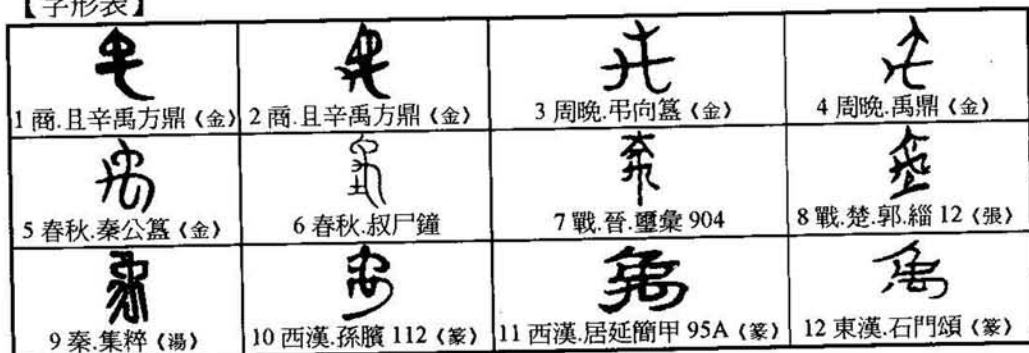 【字形表】
1 商.且辛禹方鼎《金》 2 商.且辛禹方鼎《金》 3 周晚.弔向簋《金》 4 周晚.禹鼎《金》
5 春秋.秦公簋《金》 6 春秋.叔尸鐘 7 戰.晉.璽彙 904 8 戰.楚.郭.緇 12《張》
9 秦.集粹《湯》 10 西漢.孫臏 112《篆》 11 西漢.居延簡甲 95A《篆》 12 東漢.石門頌《篆》